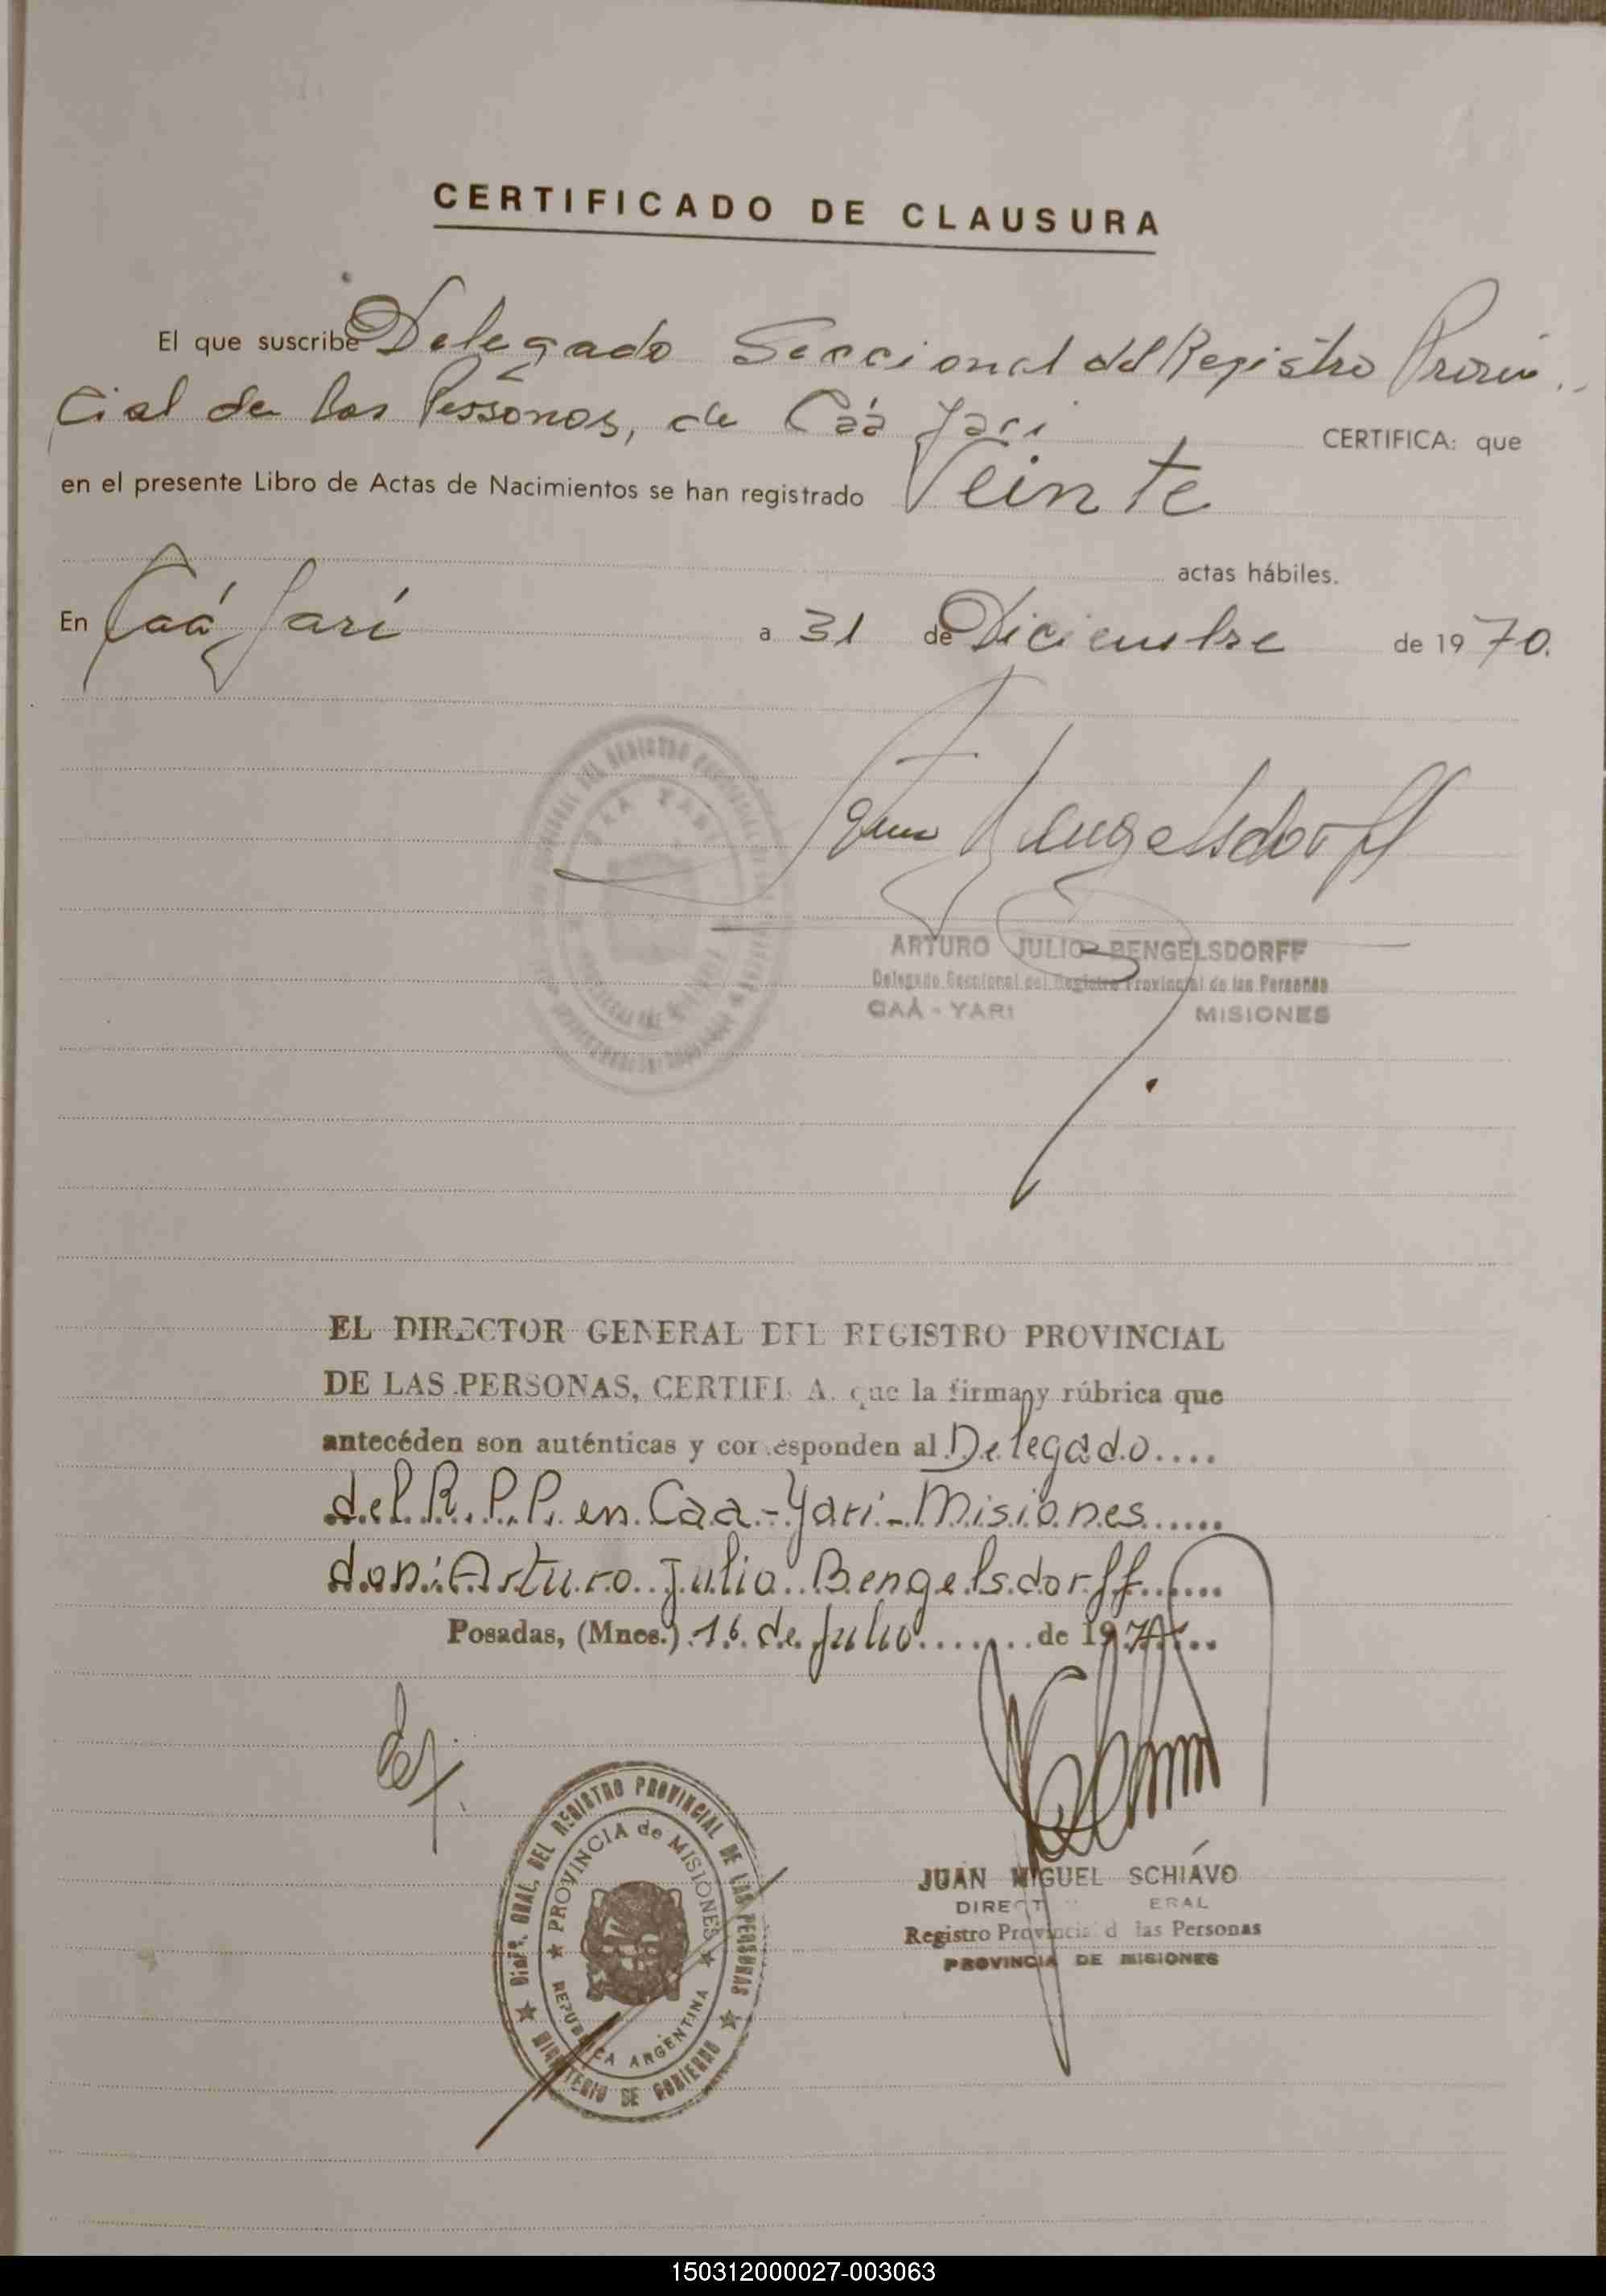 CERTIFICADO DE CLAUSURA
El que suscribe Delegado Seccional del Registro Provin
cial de las Personas, de Caá Yari CERTIFICA: que
en el presente Libro de Actas de Nacimientos se han registrado Veinte
actas hábiles.
En Caá Yarí a 31 de Diciembre de 1970.
Bengelsdorff
ARTURO JULIO BENGELSDORFF
Delegado Seccional del Registro Provincial de las Personas
CAÁ - YARI MISIONES
EL DIRECTOR GENERAL DEL REGISTRO PROVINCIAL
DE LAS PERSONAS, CERTIFI A. que la firma y rúbrica que
antecéden son auténticas y cor.esponden al Delegado....
del R.P.P. en Caa-Yarí-Misiones......
don: Arturo Julio Bengelsdorff......
Posadas, (Mnes.) 16 de Julio....... de 197
DIR. GRAL. DEL REGISTRO PROVINCIAL DE LAS PERSONAS
PROVINCIA de MISIONES
REPUBLICA ARGENTINA
MINISTERIO DE GOBIERNO
JUAN MIGUEL SCHIAVO
DIRECT ERAL
Registro Provincia d las Personas
PROVINCIA DE MISIONES
150312000027-003063